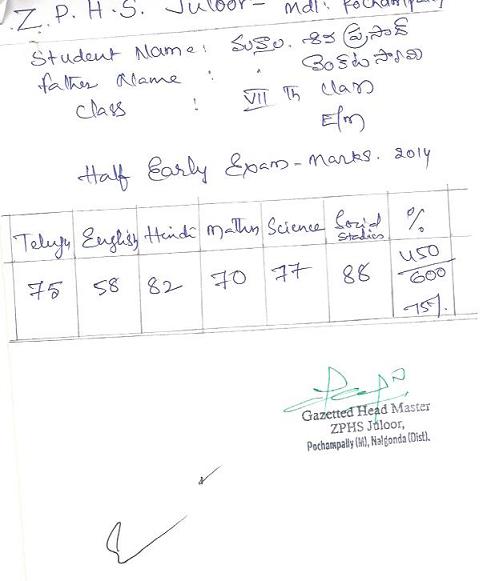 Z. P. H. S. Juloor- Mdl: Pochampally
Student Name: మక్తాల. శివ ప్రసాద్
father Name : వెంకటస్వామి
Class : VII Th Class
E/m
Half Early Exam-Marks. 2014
Telugu English Hindi Maths Science Social Studies %
75 58 82 70 77 88 450/600
75%.
Gazetted Head Master
ZPHS Juloor,
Pochampally (M), Nalgonda (Dist).